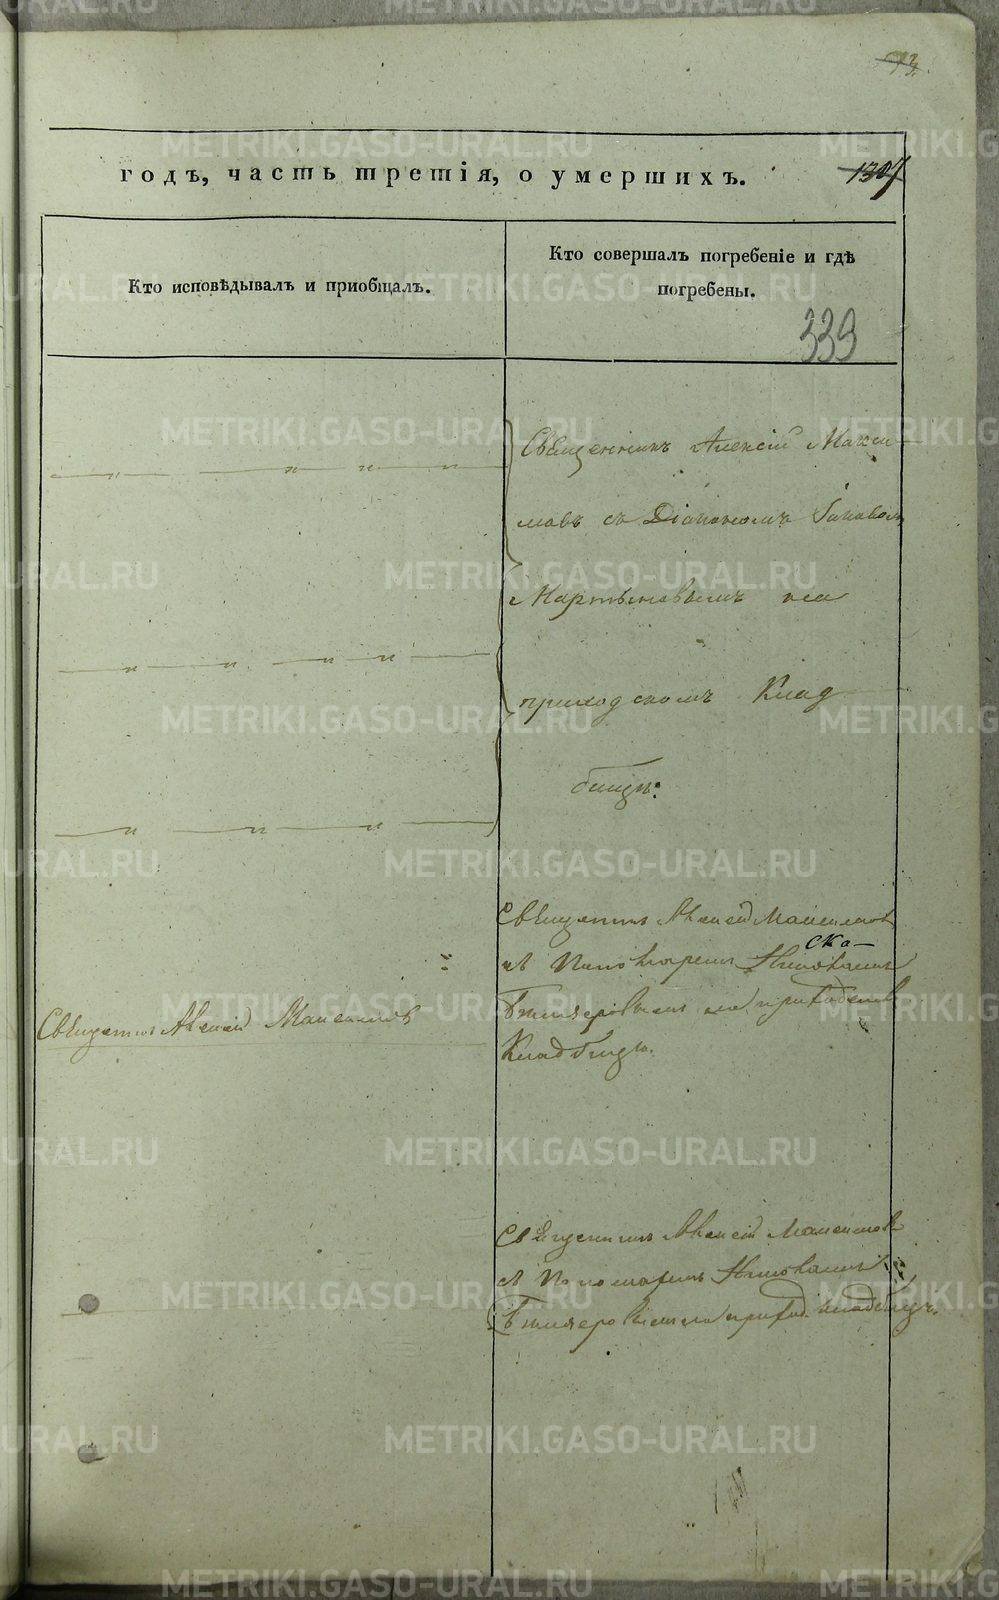 73.
годъ, часть третія, о умершихъ.
1307
Кто исповѣдывалъ и приобщалъ.
Кто совершалъ погребеніе и гдѣ
погребены.
339
Священникъ Алексій Макси-
мовъ съ Діакономъ
Мартыновымъ на
приходскомъ Клад
бищѣ.
Священникъ Алексій Максимовъ
Священникъ Алексій Максимовъ
съ Пономаремъ
ска-
на приходскомъ
Кладбищѣ.
Священникъ Алексій Максимовъ
съ Пономаремъ
на приход. кладбищѣ.
METRIKI.GASO-URAL.RU